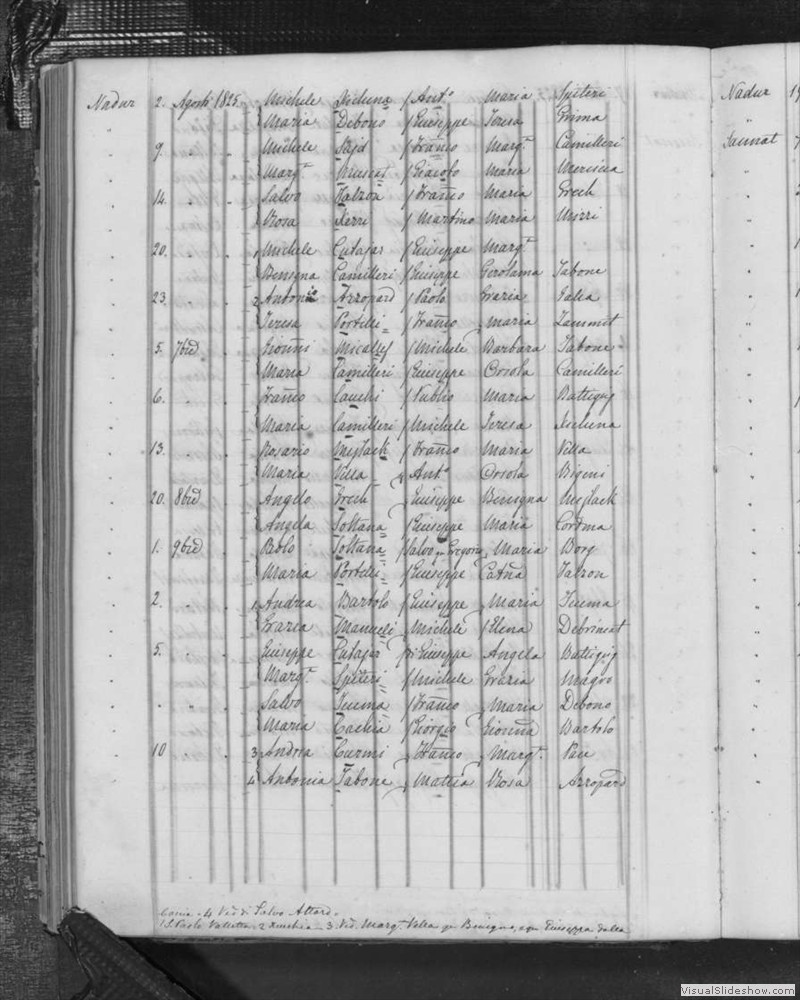 Nadur 2. Agosti 1825. Michele Xicluna Ant.o Maria Spiteri
Maria Debono Giuseppe Teresa Grima
9. Michele Franco Marg.ta Camilleri
Marg.ta Muscat Giacobo Maria Mercieca
14. Salvo Falzon Franco Maria Grech
Rosa Xerri Martino Maria Mizzi
20. Michele Cutajar Giuseppe Marg.ta
Benigna Camilleri Giuseppe Gerolama Tabone
23. 2 Antonio Azzopard Paolo Grazia Galea
Teresa Portelli Franco Maria Zammit
5. 7bre Gionni Micallef Michele Barbara Tabone
Maria Camilleri Giuseppe Orsola Camilleri
6. Franco Cauchi Publio Maria Buttigieg
Maria Camilleri Michele Teresa Xicluna
13. Rosario Mejlack Franco Maria Vella
Maria Vella Ant.o Orsola Bigeni
20. 8bre Angelo Grech Giuseppe Benigna Mejlack
Angela Soltana Giuseppe Maria Cordina
1. 9bre Paolo Soltana Salvo qm Gregorio Maria Borg
Maria Portelli Giuseppe Catna Falzon
2. 1 Andrea Bartolo Giuseppe Maria Tuema
Grazia Manueli Michele Elena Debrincat
5. Giuseppe Cutajar Giuseppe Angela Buttigieg
Marg.ta Spiteri Michele Grazia Magro
Salvo Tuema Franco Maria Debono
Maria Cachia Giorgio Gionna Bartolo
10 3 Andrea Curmi Franco Marg.ta Pace
4 Antonia Tabone Mattia Rosa Azzopard
4 Ved di Salvo Attard.
1 S. Paolo Valletta. 2 Xeuchia _ 3 Ved. Marg.ta Vella qm Benigno, e qm Giuseppa Galea
Nadur
Sannat
VisualSlideshow.com